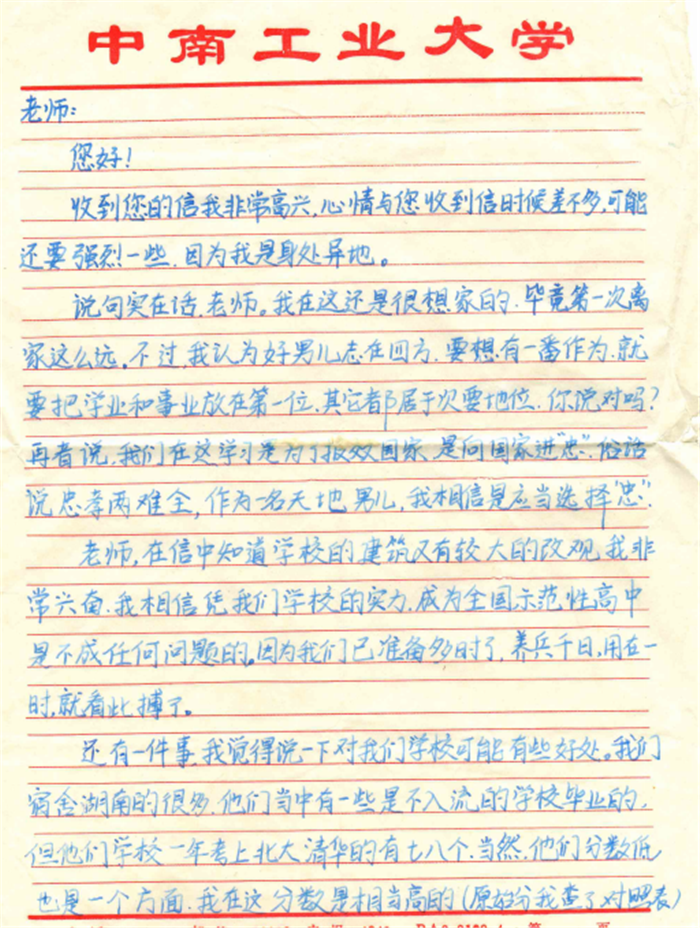 中南工业大学
老师：
您好！
收到您的信我非常高兴，心情与您收到信时候差不多，可能
还要强烈一些．因为我是身处异地。
说句实在话，老师。我在这还是很想家的．毕竟第一次离
家这么远。不过，我认为好男儿志在四方．要想有一番作为．就
要把学业和事业放在第一位．其它都居于次要地位．你说对吗？
再者说，我们在这学习是为了报效国家，是向国家进“忠”．俗话
说忠孝两难全，作为一名天地男儿，我相信是应当选择“忠”．
老师，在信中知道学校的建筑又有较大的改观，我非
常兴奋．我相信凭我们学校的实力．成为全国示范性高中
是不成任何问题的。因为我们已准备多时了，养兵千日，用在一
时，就看此搏了。
还有一件事，我觉得说一下对我们学校可能有些好处。我们
宿舍湖南的很多．他们当中有一些是不入流的学校毕业的，
但他们学校一年考上北大清华的有七八个．当然．他们分数低
也是一个方面．我在这分数是相当高的（原始分我查了对照表）
第 页